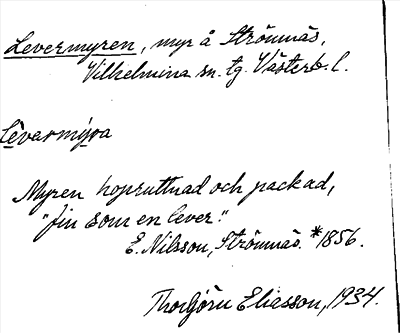 Levermyren, myr å Strömnäs,
Vilhelmina sn. tg. Västerb. l.
Lèvarmýra
Myren hopruttnad och packad,
"fin som en lever."
E. Nilsson, Strömnäs. *1856.
Thorbjörn Eliasson, 1934.